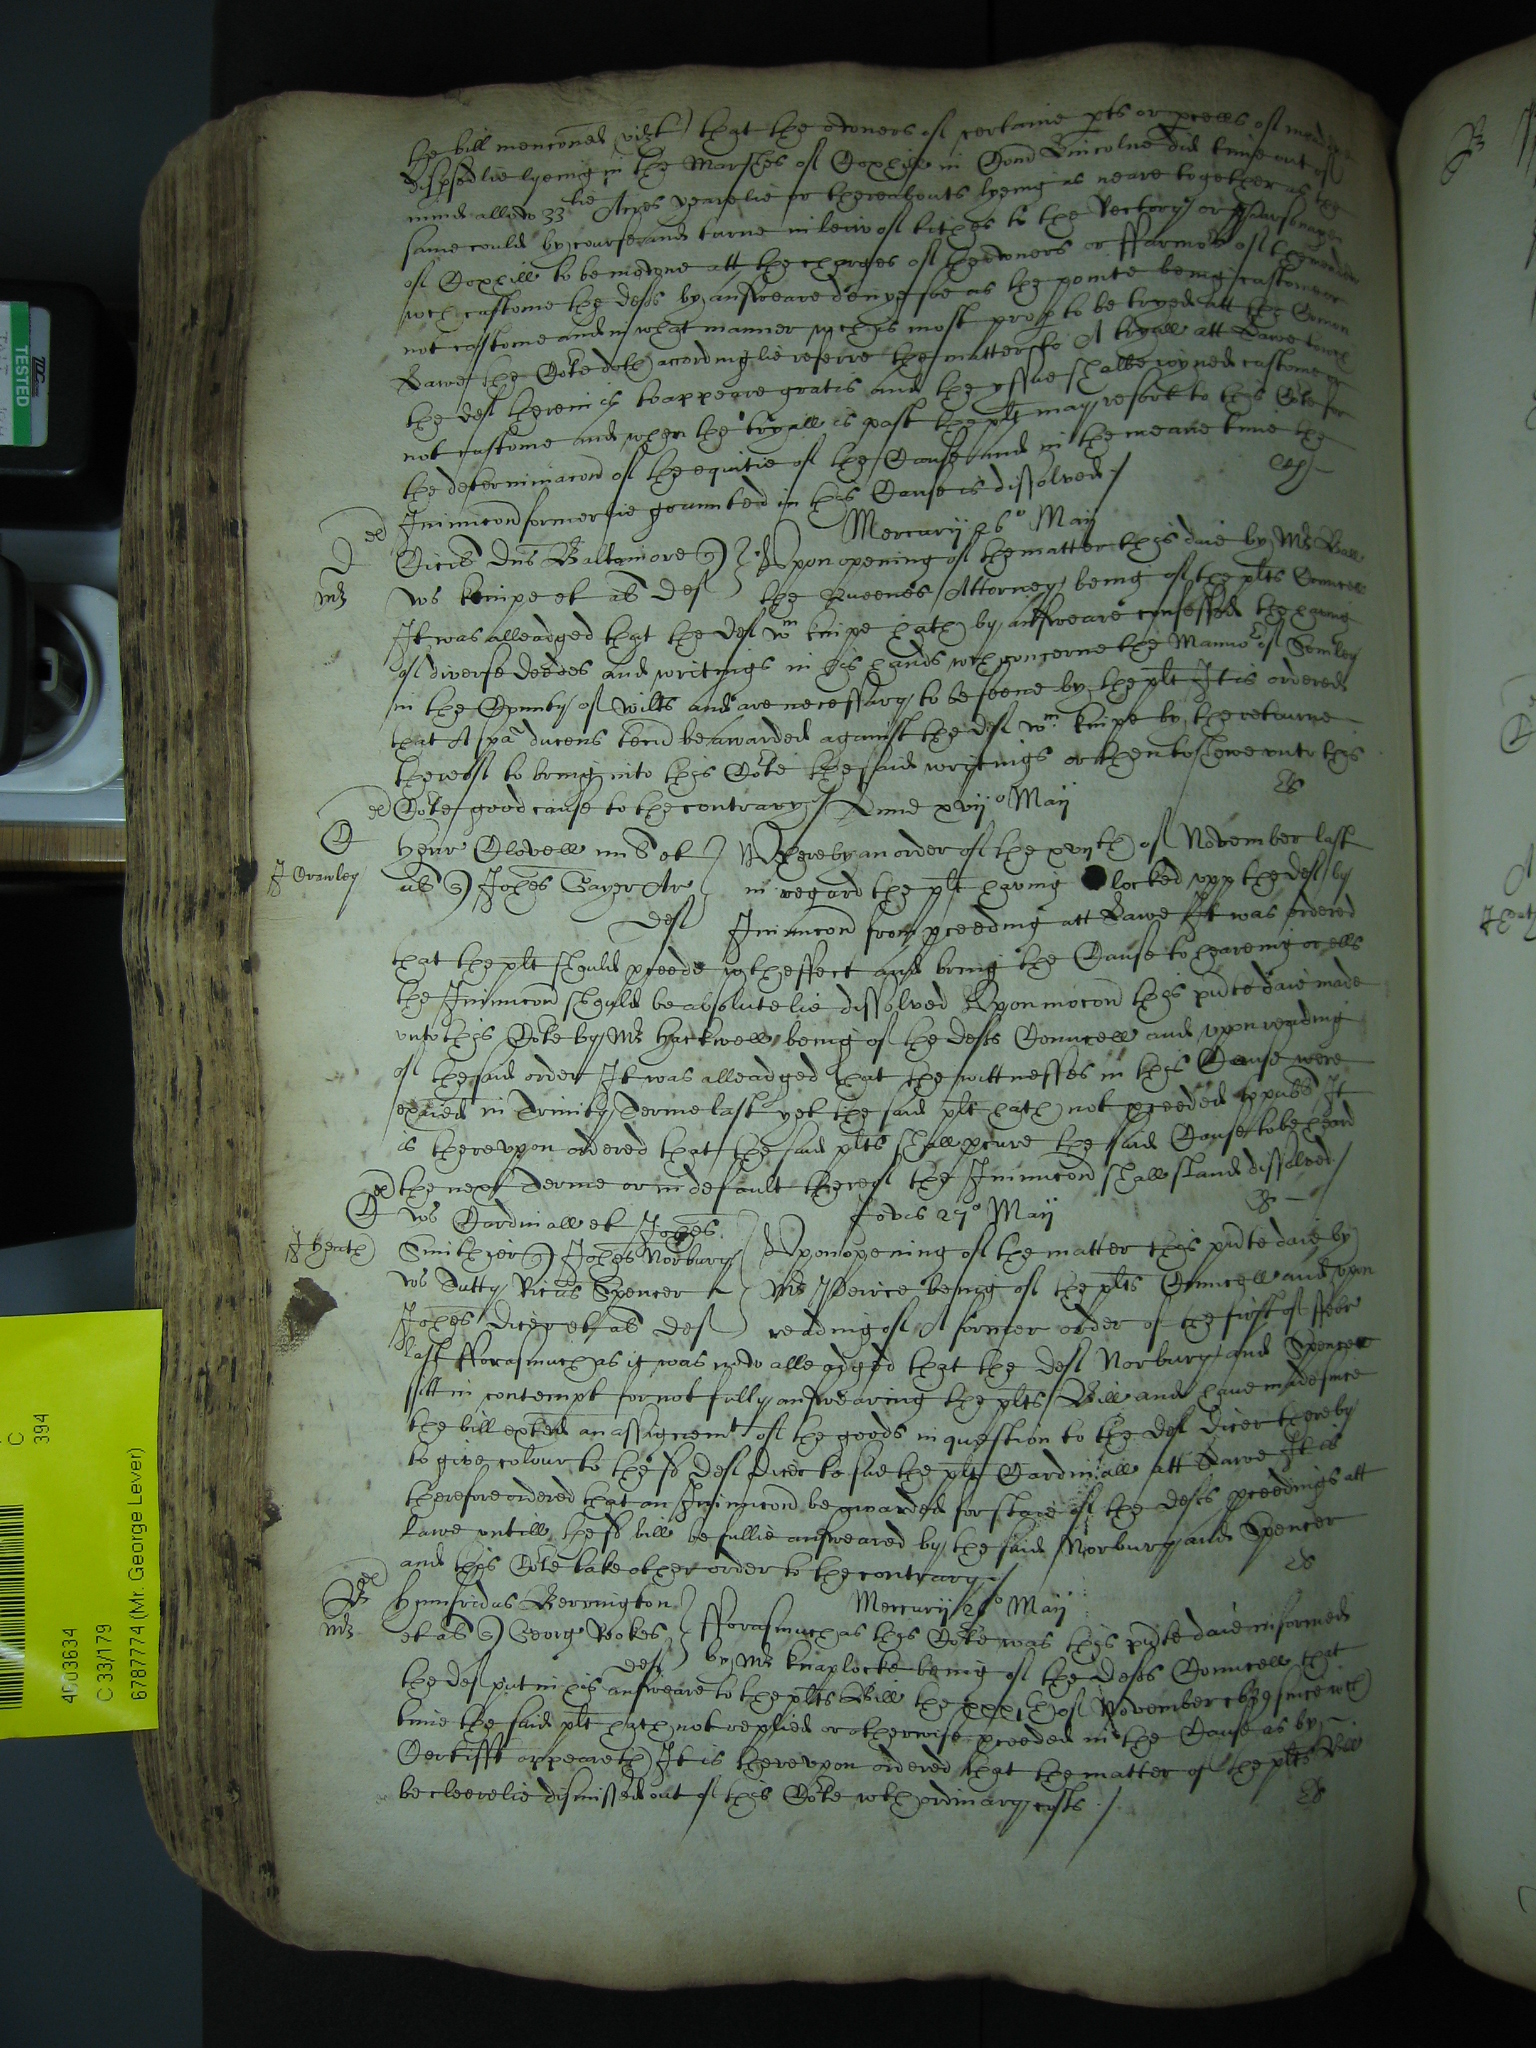 the bill menconed vizt) that the owners of certaine pts or pcells of
dispsedlie lyeing in the Marshes of Goxhill in Com Lincolne did time out of
minde allow 33tie Acres yearelie or thereabouts lyeing as neare together as the
same could by course and turne in leiw of tithes to the Rectory or Parsonage
of Goxhill to be mowne att the charges of the owners or ffarmors of
wch custome the defts by answeare denye soe as the pointe being custome or
not custome and in what manner wch is most prop to be tryed att the Comon
Lawe the Cote doth accordinglie referre the matter to A tryall att Lawe
the def herein is to appeare gratis and the yssue shalbe ioyned custome or
not custome and when the tryall is past the plt may resort to this Cote for
the determinacon of the equitie of the Cause and in the meane time the
Iniunccon formerlie graunted in this Cause is dissolved /
Mercurij 26o Maij
Dns Baltamore Upon opening of the matter this daie by Mr
Ws knipe et al def the Queenes Attorney being of the plts Councell
It was alleadged that the def Wm knipe hath by answeare confessed the having
of diverse deedes and writings in his hands wch concerne the Mannor of Semley
in the County of Wilts and are necessary to be seene by the plt It is ordered
that A spa ducens tecu be awarded against the def Wm knipe by the retourne
thereof to bring into this Cote the said writings or then to shewe unto this
Cote good cause to the contrary / Lune xvijo Maij
J Crawley
Henr Clovell mil et Whereby an order of the xvijth of November last
al Johes Gayer Ar in regard the plt having locked upp the def by
def Iniunccon from pceeding att Lawe It was ordered
that the plt should pceede wth effect and bring the Cause to heareing or ells
the Iniunccon should be absolutelie dissolved Upon mocon this pnte daie made
unto this Cote by Mr Hackwell being of the defts Councell and upon reading
of the said order It was alleadged that the wittnesses in this Cause were
exaied in Trinity Terme last yet the said plt hath not pceeded to publ It
is thereupon ordered that the said plts shall pcure the said Cause to be heard
the next Terme or in default thereof the Iniunccon shall stand dissolved /
Jovis 27o Maij
J Heath
Ws Cardinall et Johes
Smithier Johes Norbury Upon opening of the matter this pnte daie by
Ws Tutty Ricus Spencer Mr Peirce being of the plts Councell and upon
Johes Dicer et al def reading of A former order of the first of ffebr
last fforasmuch as it was now alleadged that the def Norbury and Spencer
sitt in contempt for not fully answearing the plts Bill and have made since
the bill exhted an assignemt of the goods in question to the def Dicer thereby
to give colour to the sd def Dicer to sue the plt Cardinall att Lawe It is
therefore ordered that an Iniunccon be awarded for staie of the defts pceedings att
Lawe untill the sd bill be fullie answeared by the said Norbury and Spencer
and this Cote take other order to the contrary /
Mercurij 26o Maij
Humfridus Berrington
et al Georg Rookes fforasmuch as this Cote was this pnte daie informed
def by Mr knaplocke being of the defts Councell that
the def put in his answeare to the plts Bill the of November since wch
time the said plt hath not replied or otherwise pceeded in the Cause as by
Certifft appeareth It is thereupon ordered that the matter of the plts Bill
be cleerelie dismissed out of this Cote wth ordinary costs /
TESTED
C
394
4003634
C 33/179
6787774 (Mr. George Lever)